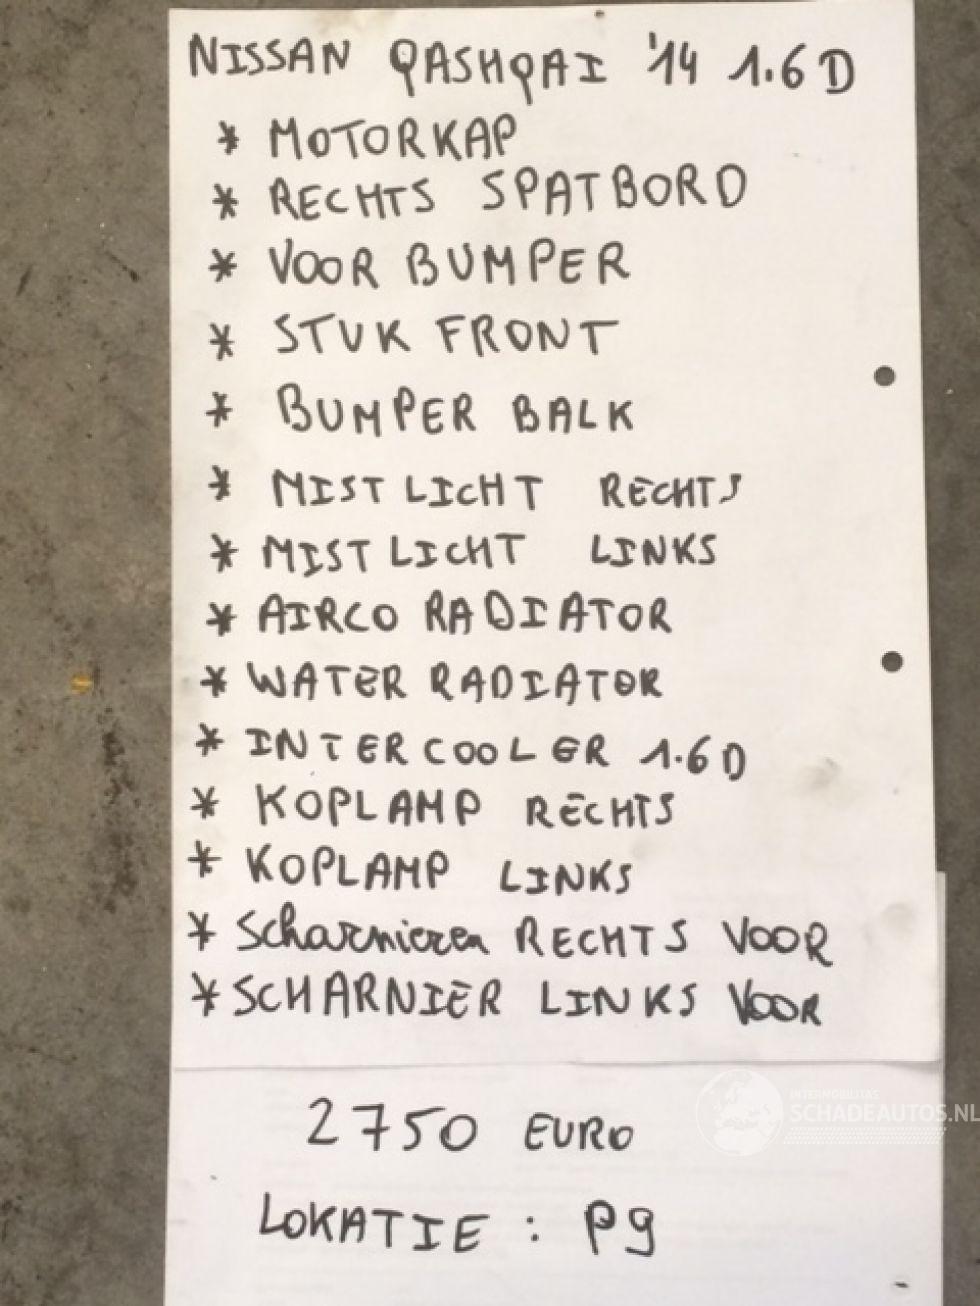 NISSAN QASHQAI '14 1.6 D
* MOTORKAP
* RECHTS SPATBORD
* VOOR BUMPER
* STUK FRONT
* BUMPER BALK
* MIST LICHT RECHTS
* MIST LICHT LINKS
* AIRCO RADIATOR
* WATER RADIATOR
* INTERCOOLER 1.6 D
* KOPLAMP RECHTS
* KOPLAMP LINKS
* Scharnieren RECHTS VOOR
* SCHARNIER LINKS VOOR
INTERMOBILITAS
SCHADEAUTOS.NL
2750 EURO
LOKATIE : P9